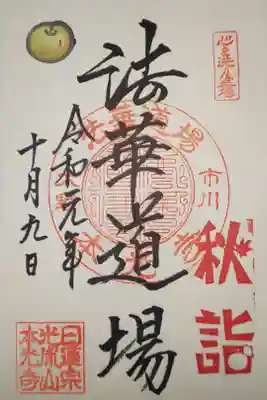 法華道場
令和元年
十月九日
秋詣
市川
日蓮宗
光胤山
本光寺